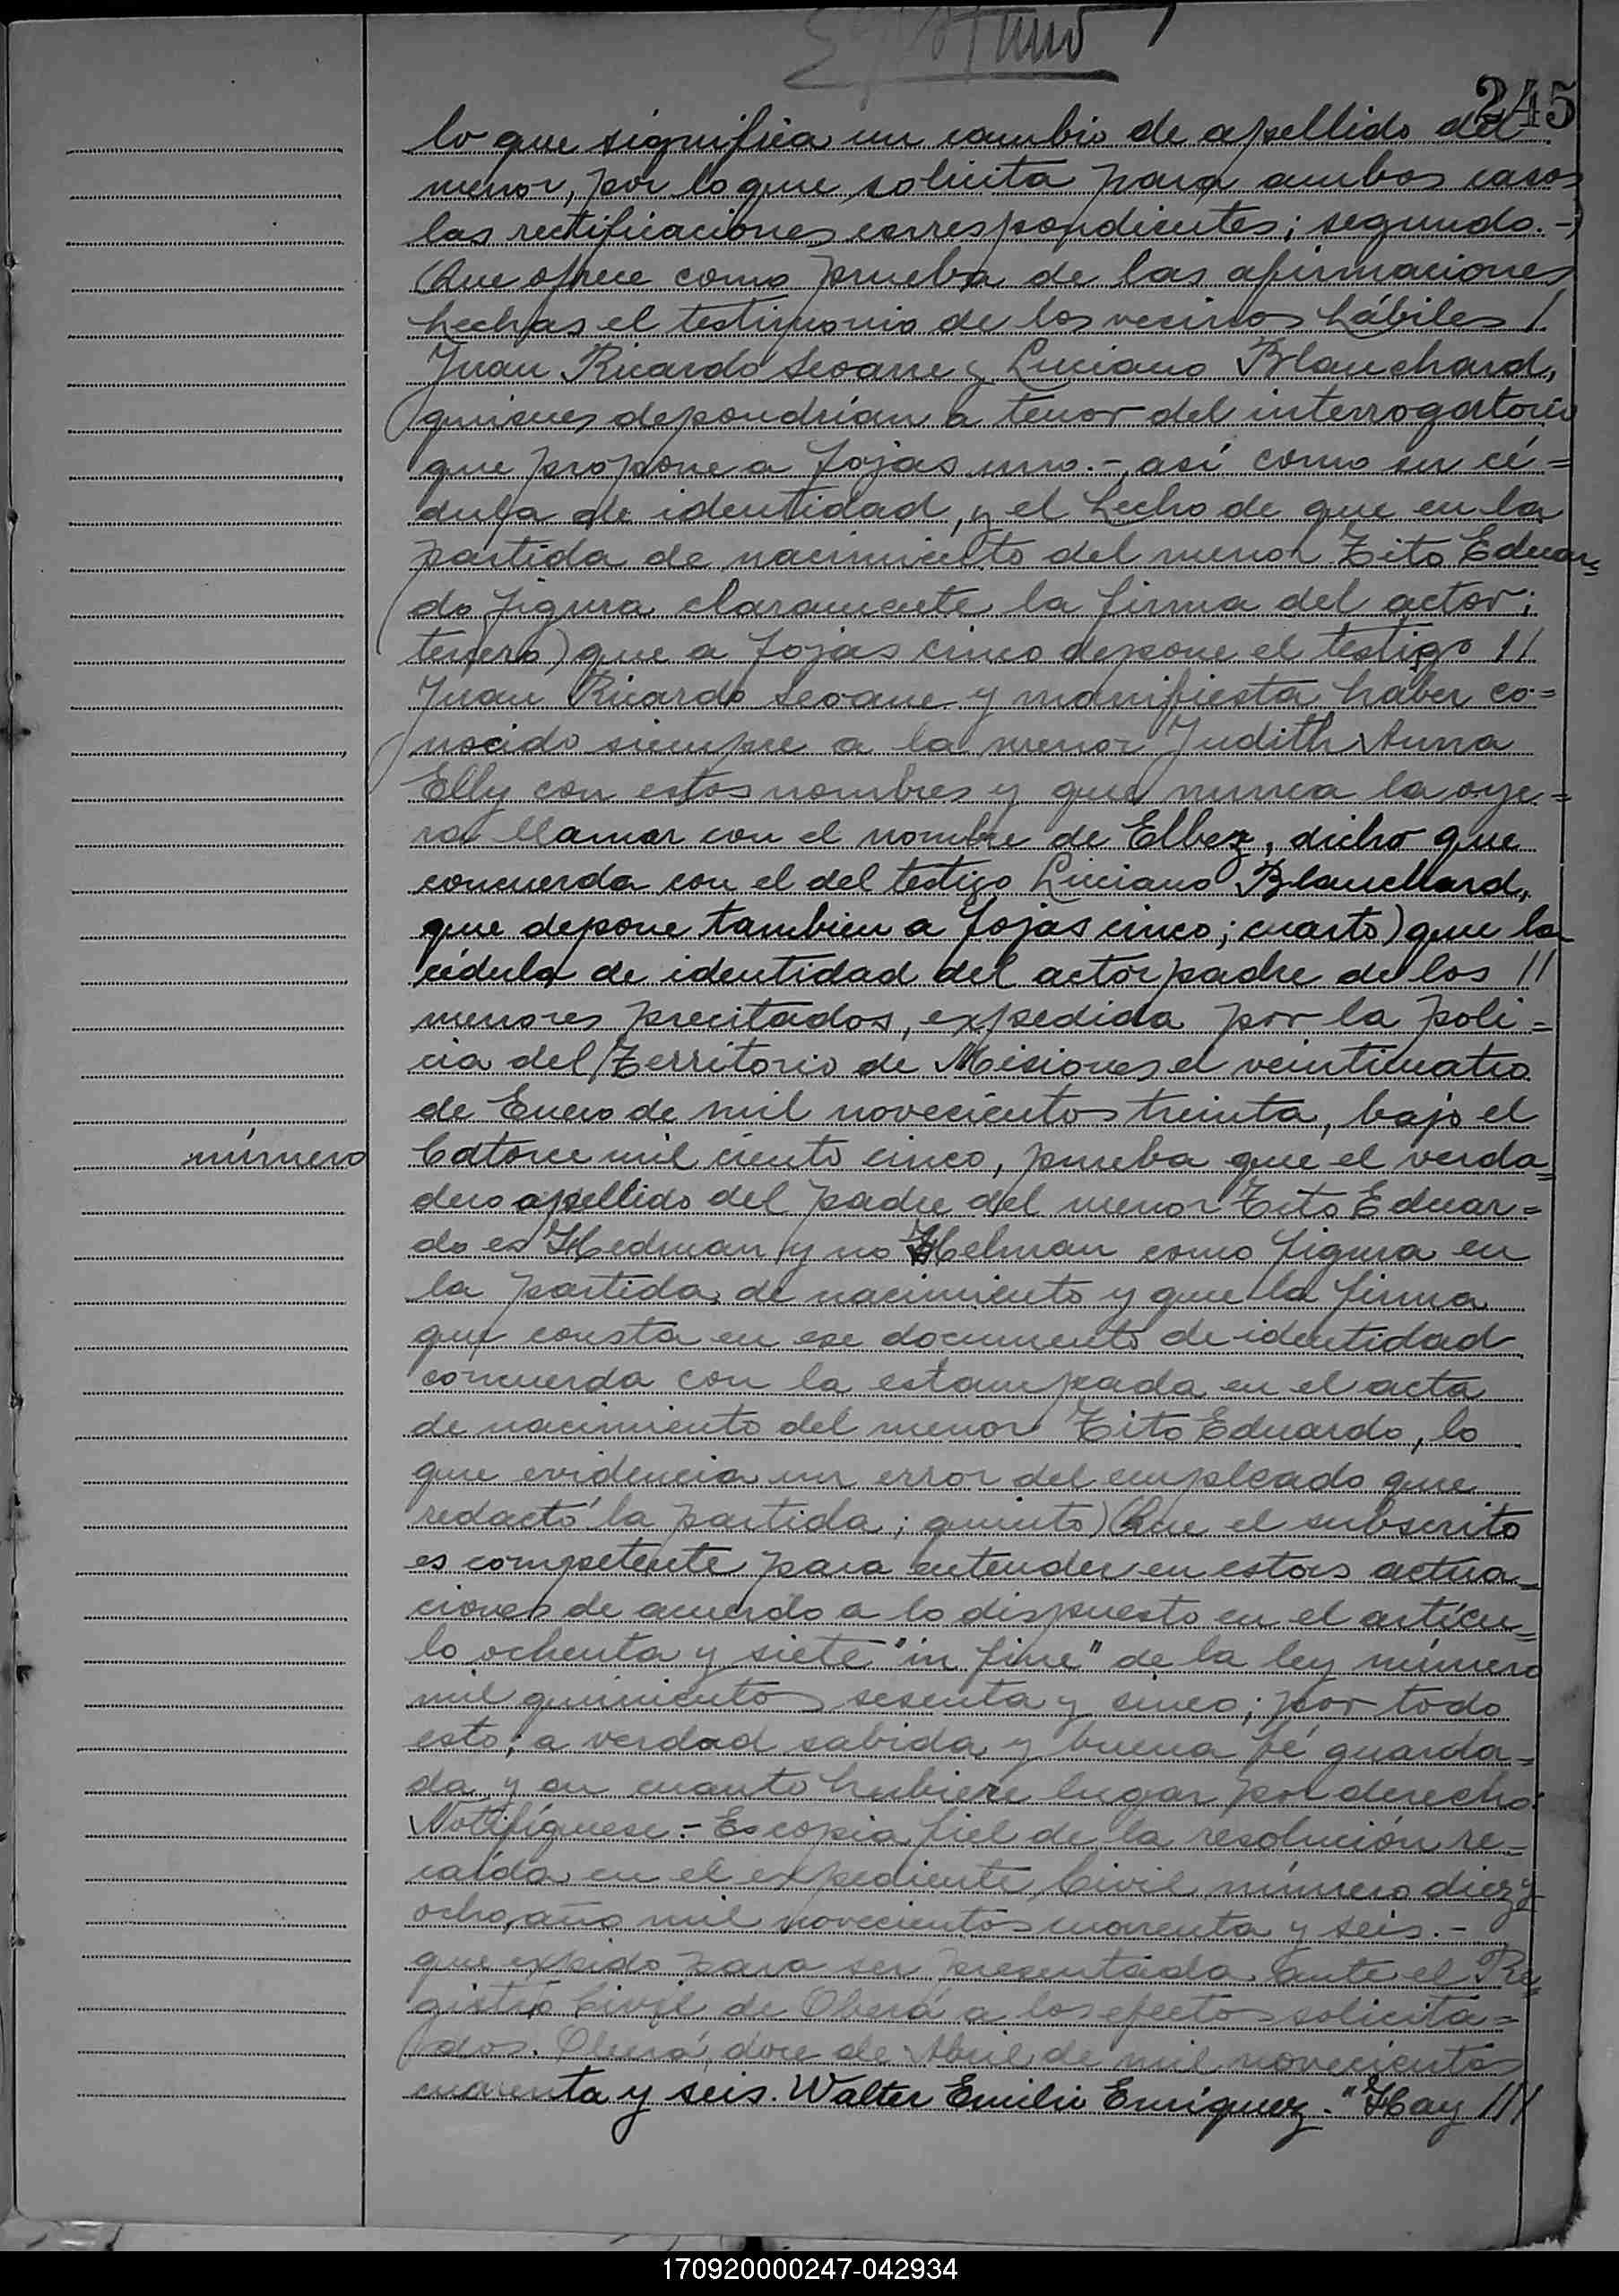 245
lo que significa un cambio de apellido del
menor, por lo que solicita para ambos casos
las rectificaciones correspondientes; segundo.-)
Que ofrece como prueba de las afirmaciones
hechas el testimonio de los vecinos hábiles /
Juan Ricardo Seoane y Luciano Blanchard,
quienes depondrían a tenor del interrogatorio
que propone a fojas uno.- así como su cé=
dula de identidad, y el hecho de que en la
partida de nacimiento del menor Tito Eduar=
do figura claramente la firma del actor;
tercero) que a fojas cinco depone el testigo //
Juan Ricardo Seoane y manifiesta haber co=
nocido siempre a la menor Judith Anna
Elly con estos nombres y que nunca la oye=
ra llamar con el nombre de Elbez, dicho que
concuerda con el del testigo Luciano Blanchard,
que depone tambien a fojas cinco; cuarto) que la
cédula de identidad del actor padre de los //
menores precitados, expedida por la poli=
cia del Territorio de Misiones el veinticuatro
de Enero de mil novecientos treinta, bajo el
número Catorce mil ciento cinco, prueba que el verda=
dero apellido del padre del menor Tito Eduar=
do es Hedman y no Helman como figura en
la partida de nacimiento y que la firma
que consta en ese documento de identidad
concuerda con la estampada en el acta
de nacimiento del menor Tito Eduardo, lo
que evidencia un error del empleado que
redactó la partida; quinto) Que el subscrito
es competente para entender en estas actua=
ciones de acuerdo a lo dispuesto en el artícu=
lo ochenta y siete "in fine" de la ley número
mil quinientos sesenta y cinco; por todo
esto, a verdad sabida y buena fé guarda=
da y en cuanto hubiere lugar por derecho:
Notifíquese.- Es copia fiel de la resolución re=
caída en el expediente Civil número diez y
ocho, año mil novecientos cuarenta y seis.-
que expido para ser presentada ante el Re=
gistro Civil de Oberá a los efectos solicita=
dos. Oberá, doce de Abril de mil novecientos
cuarenta y seis. Walter Emilio Enríquez." Hay ///
170920000247-042934